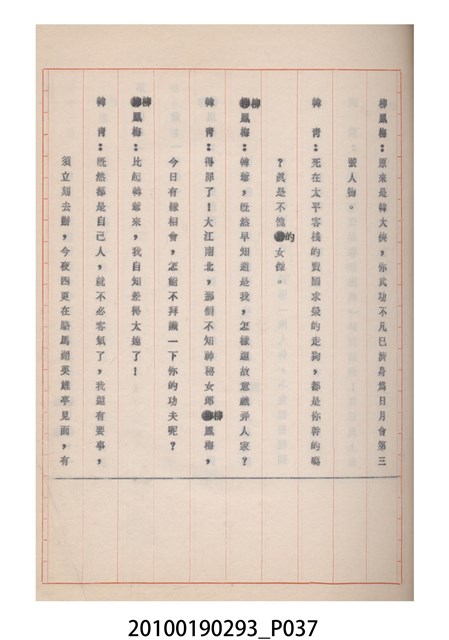 柳鳳梅：原來是韓大俠，你武功不凡已躋身為日月會第三
號人物。
韓　青：死在太平客棧的賣國求榮的走狗，都是你幹的嗎
？眞是不愧的女傑。
柳鳳梅：韓爺，旣然早知道是我，怎樣還故意戲弄人家？
韓　青：得罪了！大江南北，那個不知神秘女郎柳鳳梅，
今日有緣相會，怎能不拜識一下你的功夫呢？
柳鳳梅：比起韓爺來，我自知差得太遠了！
韓　青：旣然都是自己人，就不必客氣了，我還有要事，
須立刻去辦，今夜四更在駱馬湖英雄亭見面，有
20100190293_P037